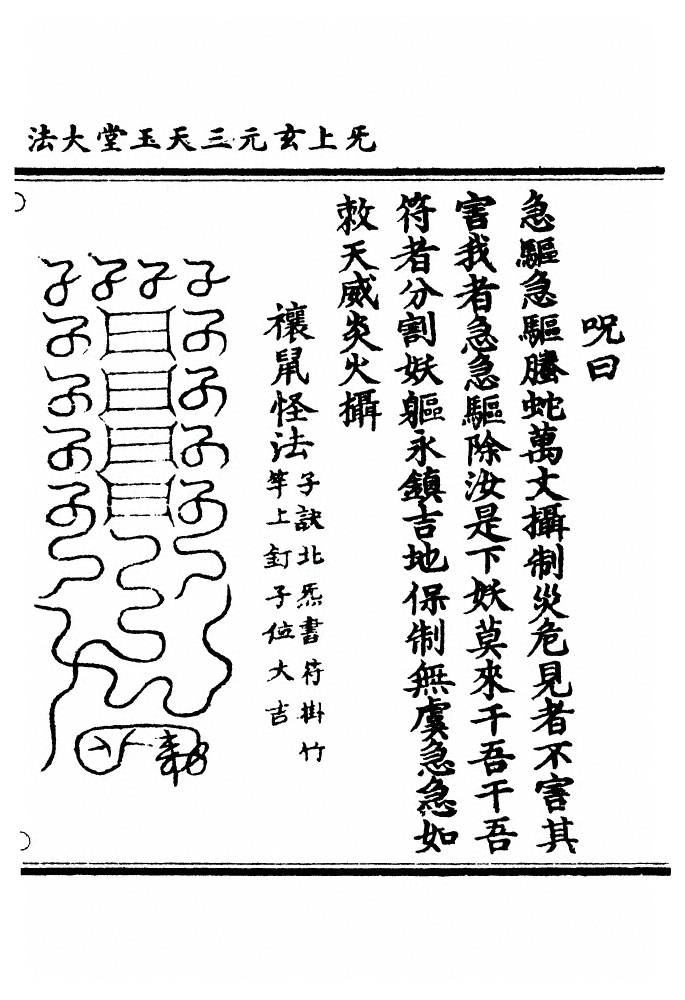 法大堂玉天三元玄上炁
呪曰
急驅急驅螣蛇萬丈攝制災危見者不害其
害我者急急驅除汝是下妖莫來干吾干吾
符者分割妖軀永鎮吉地保制無虞急急如
敕天威炎火攝
禳鼠怪法
子訣北炁書符掛竹
竿上釘子位大吉
子子子子
子子
子子
子子
子子